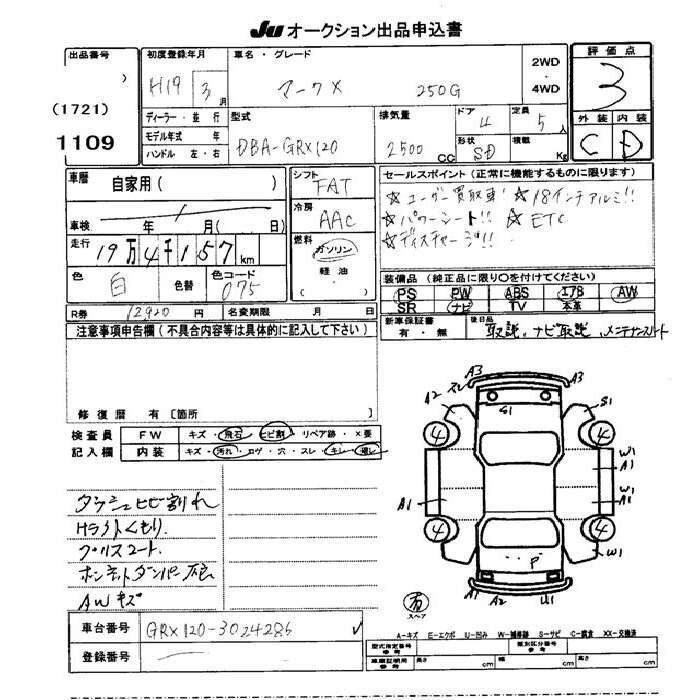 JU オークション出品申込書
出品番号
(1721)
1109
初度登録年月
H19 3 月
ディーラー・並行
モデル年式 年
ハンドル 左・右
車名・グレード
マークX 250G
2WD・4WD
型式
DBA-GRX120
排気量
2500 CC
ドア 4
形状 SD
定員 5 人
積載 Kg
評価点
3
外装 内装
C D
車歴
自家用( )
車検 年 月( 日)
走行 19万4千157 km
色 白 色替 色コード 075
R券 12920 円 名変期限 月 日
シフト
FAT
冷房
AAC
燃料
ガソリン
軽油
セールスポイント(正常に機能するものに限ります)
☆ユーザー買取車 ☆18インチアルミ!!
☆パワーシート!! ☆ETC
☆ディスチャージ!!
装備品(純正品に限り〇を付けてください)
PS PW ABS エアB AW
SR ナビ TV 本革
新車保証書 有・無
後日品 取説、ナビ取説、メンテナンスノート
注意事項申告欄(不具合内容等は具体的に記入して下さい)
修復歴 有[箇所 ]
検査員 FW キズ・飛石・ヒビ割・リペア跡・×要
記入欄 内装 キズ・汚れ・コゲ・穴・スレ・キレ
ダッシュヒビ割れ
Hライトくもり
プリスコート
ボンネットダンパー不良
AWキズ
A3 A3
A2 S1 S1
4 4
W1
A1
A1 W1
A1
4 4
W1
P
A1 A2 W1
有
スペア
A-キズ E-エクボ U-凹み W-補修跡 S-サビ C-腐食 XX-交換済
車台番号 GRX120-3024286
登録番号
型式指定番号 参考 類別区分番号 参考
車庫証明用 参考 長さ cm 幅 cm 高さ cm